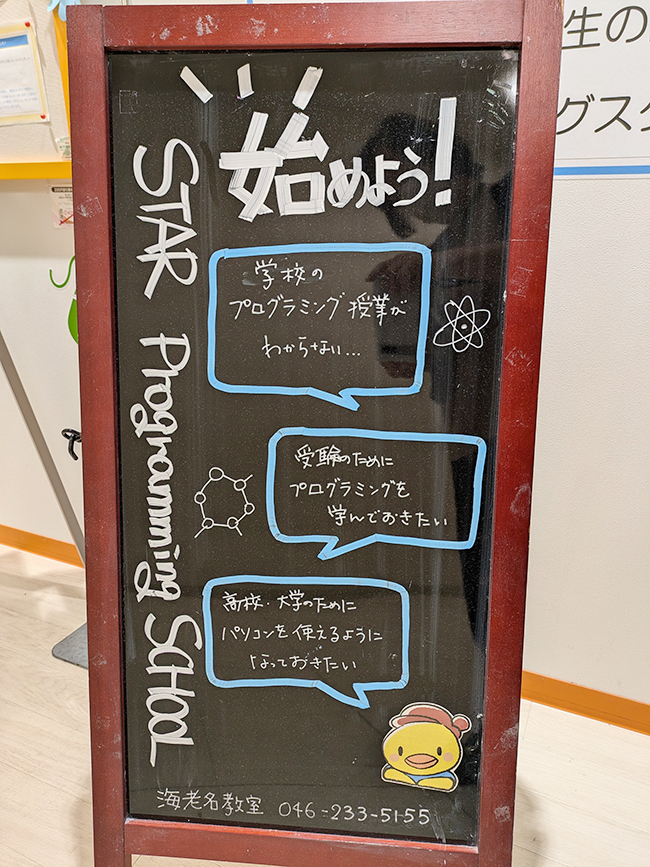 始めよう!
STAR Programming SCHOOL
学校の
プログラミング授業が
わからない...
受験のために
プログラミングを
学んでおきたい
高校・大学のために
パソコンを使えるように
なっておきたい
海老名教室 046-233-5155
生の
グスク